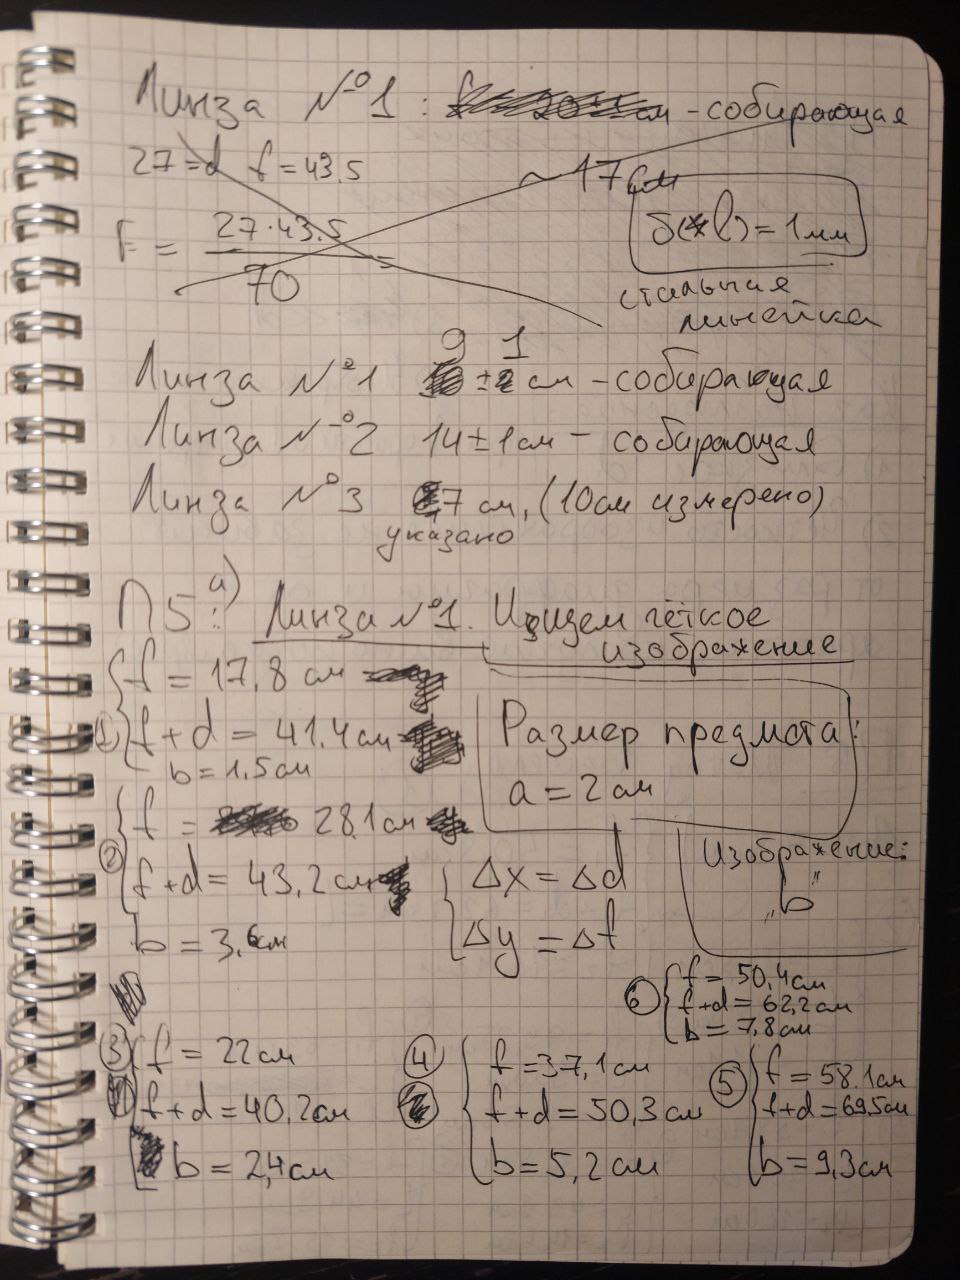 Линза №1: см - собирающая
27 = d f = 43.5
~ 17 см
F = 27·43.5 / 70 =
δ(l) = 1 мм
стальная
линейка
Линза №1 9 ± 1 см - собирающая
Линза №2 14 ± 1 см - собирающая
Линза №3 7 см, (10 см измерено)
указано
П5: а) Линза №1. Ищем чёткое
изображение
① f = 17,8 см
f + d = 41.4 см
b = 1.5 см
Размер предмета:
a = 2 см
② f = 28.1 см
f + d = 43,2 см
b = 3.6 см
Δx = Δd
Δy = Δf
Изображение:
„b”
⑥ f = 50,4 см
f + d = 62,2 см
b = 7,8 см
③ f = 22 см
f + d = 40,2 см
b = 2,4 см
④ f = 37,1 см
f + d = 50,3 см
b = 5,2 см
⑤ f = 58.1 см
f + d = 69.5 см
b = 9,3 см